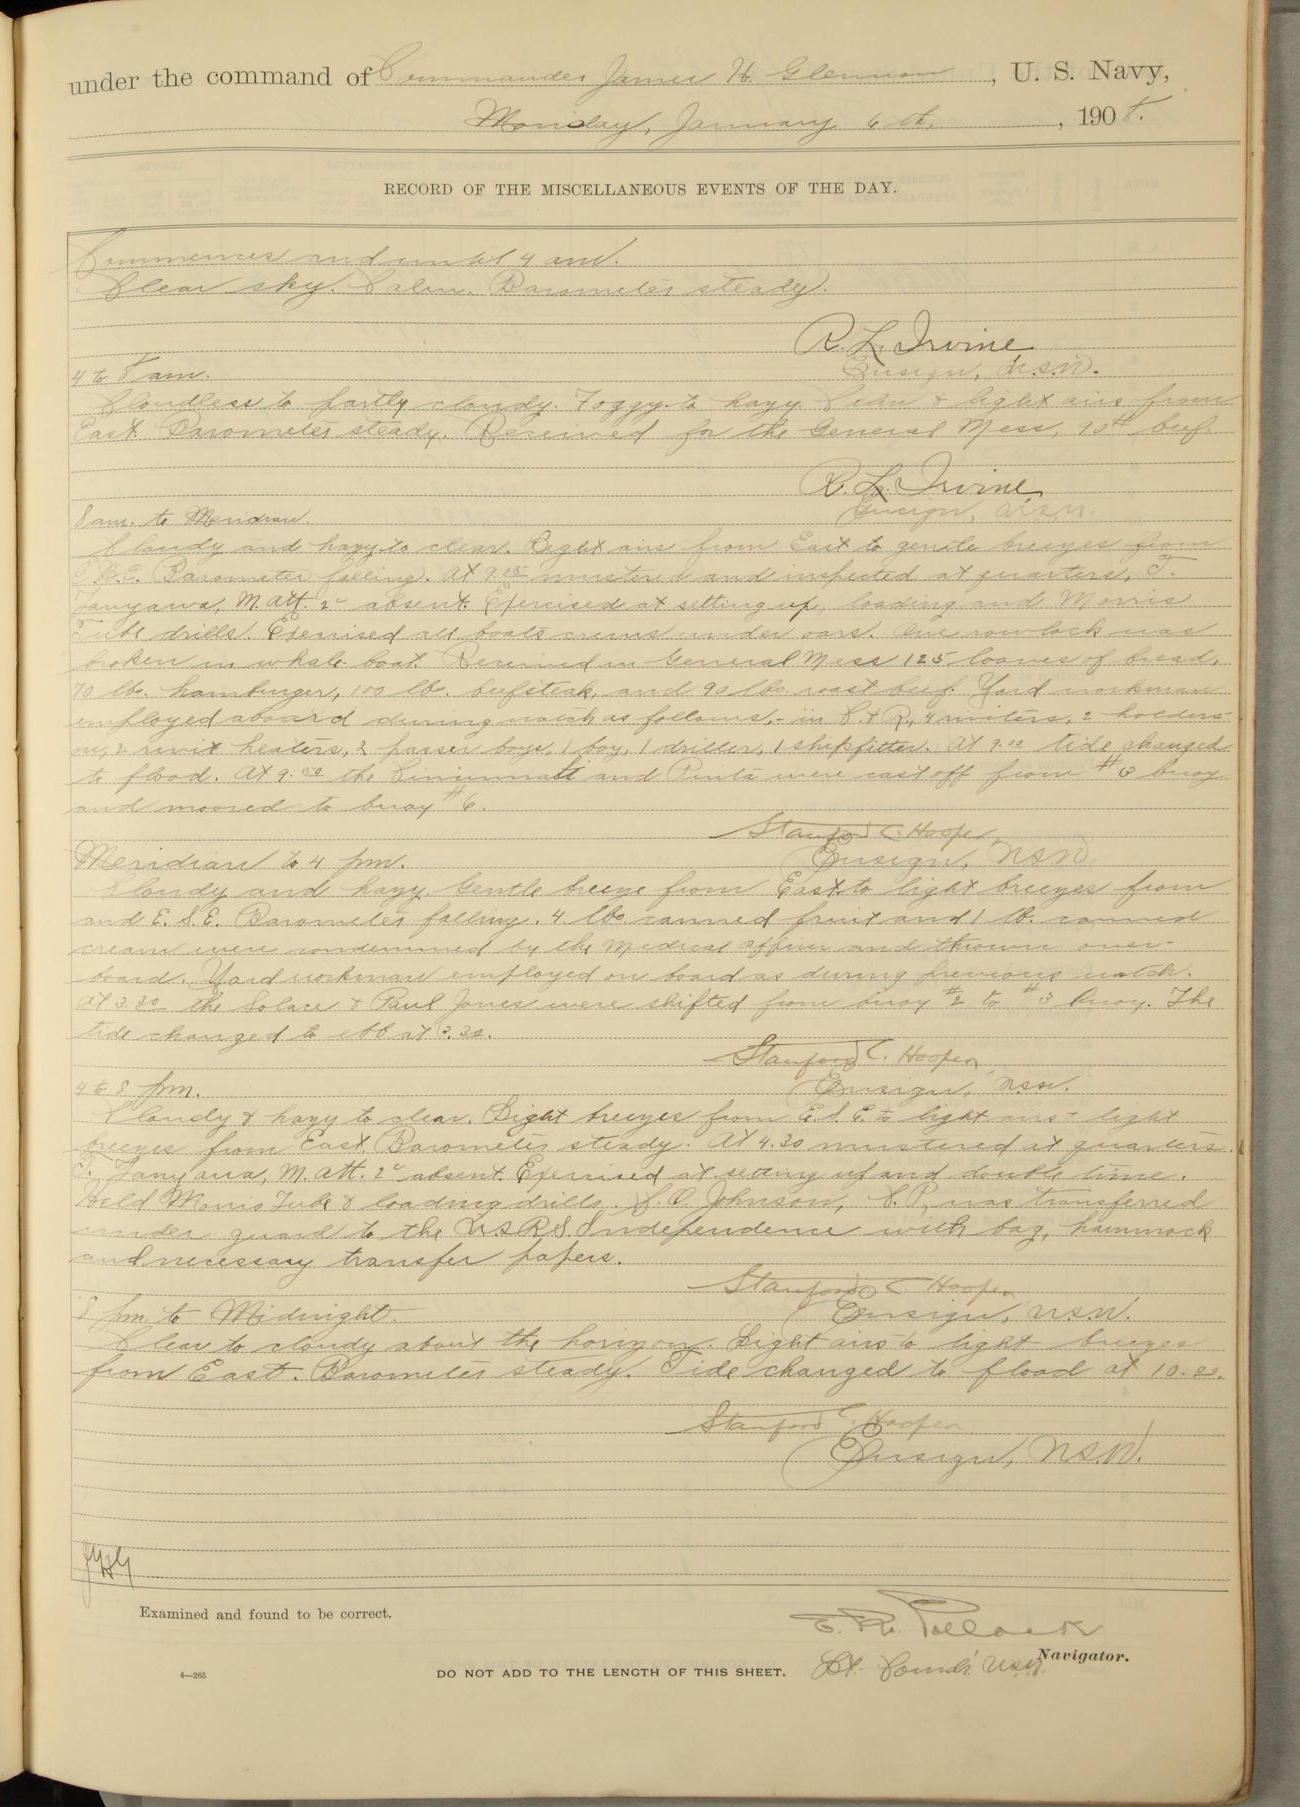 under the command of Commander James H. Glennon, U. S. Navy,
Monday, January 6th, 1908.
RECORD OF THE MISCELLANEOUS EVENTS OF THE DAY.
Commences and until 4 am.
Clear sky. Calm. Barometer steady.
R. L. Irvine
Ensign, U.S.N.
4 to 8 am.
Cloudless to partly cloudy. Foggy to hazy. Calm & light airs from
East. Barometer steady. Received for the General Mess, 90# beef.
R. L. Irvine
Ensign, U.S.N.
8 am. to Meridian.
Cloudy and hazy to clear. Light airs from East to gentle breezes from
Barometer falling. At 9. mustered and inspected at quarters, T.
Tanyawa, M. Att. 2c absent. Exercised at setting up, loading and Morris
Tube drills. Exercised all boats crews under oars. One rowlock was
broken in whale boat. Received in General Mess 125 loaves of bread,
70 lbs. hamburger, 100 lb. beefsteak, and 90 lbs. roast beef. Yard workmen
employed aboard during watch as follows,- in C. & R., 4 riviters, 2 holders
on, 2 rivit heaters, 2 passer boys, 1 boy, 1 driller, 1 shipfitter. At 9.00 tide changed
to flood. At 9.50 the Cincinnati and Pinta were cast off from #3 buoy
and moored to buoy #6.
Stanford C. Hooper
Ensign, USN
Meridian to 4 pm.
Cloudy and hazy. Gentle breeze from East to light breezes from
and E.S.E. Barometer falling. 4 lbs. canned fruit and 1 lb. canned
cream were condemned by the medical officer and thrown over-
board. Yard workmen employed on board as during previous watch.
At 3.30 the Solace & Paul Jones were shifted from buoy #2 to #3 buoy. The
tide changed to ebb at
Stanford C. Hooper
Ensign, USN.
4 to 8 pm.
Cloudy & hazy to clear. Light breezes from E.S.E. to light airs - light
breezes from East. Barometer steady. At 4.30 mustered at quarters.
Tanyawa, M. Att. 2c absent. Exercised at setting up and double time.
Held Morris Tube & loading drills. Johnson, C.P., was transferred
under guard to the U.S.R.S. Independence with bag, hammock
and necessary transfer papers.
Stanford C. Hooper
Ensign, U.S.N.
8 pm. to Midnight.
Clear to cloudy about the horizon. Light airs to light breezes
from East. Barometer steady. Tide changed to flood at 10.
Stanford C. Hooper
Ensign, U.S.N.
JHG
Examined and found to be correct.
Pollock
Lt. Comdr. USN. Navigator.
4—265
DO NOT ADD TO THE LENGTH OF THIS SHEET.